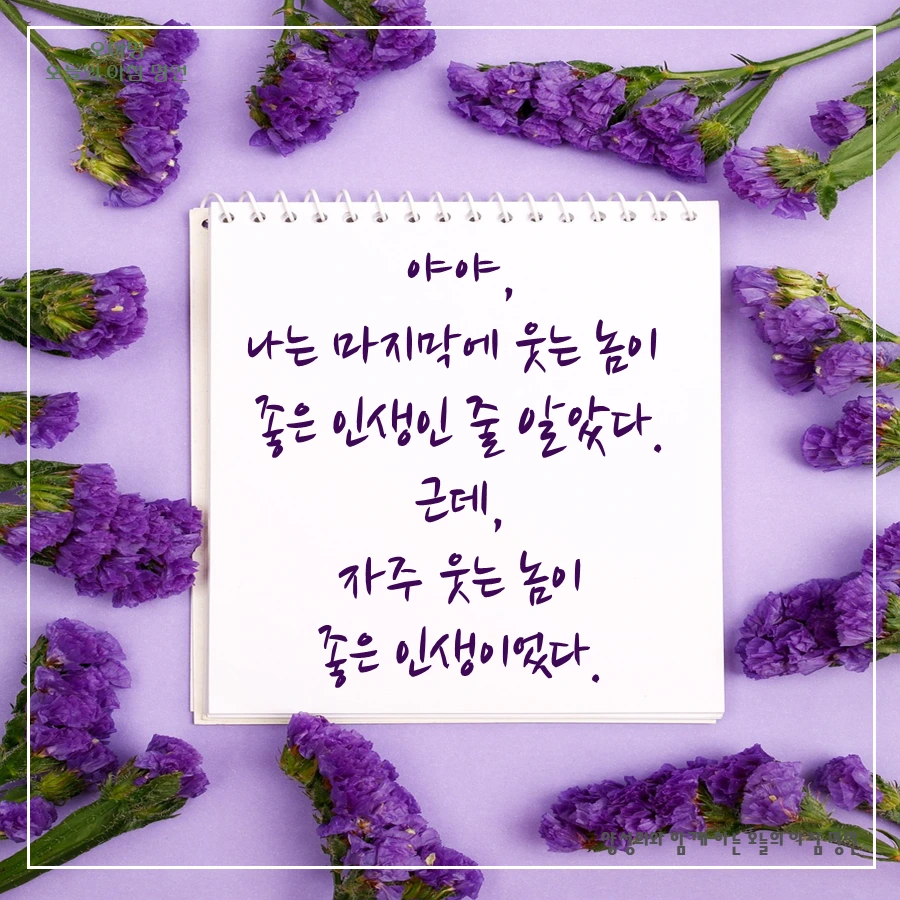 오늘의 아침 명언
야야,
나는 마지막에 웃는 놈이
좋은 인생인 줄 알았다.
근데,
자주 웃는 놈이
좋은 인생이었다.
함께 하는 오늘의 아침 명언